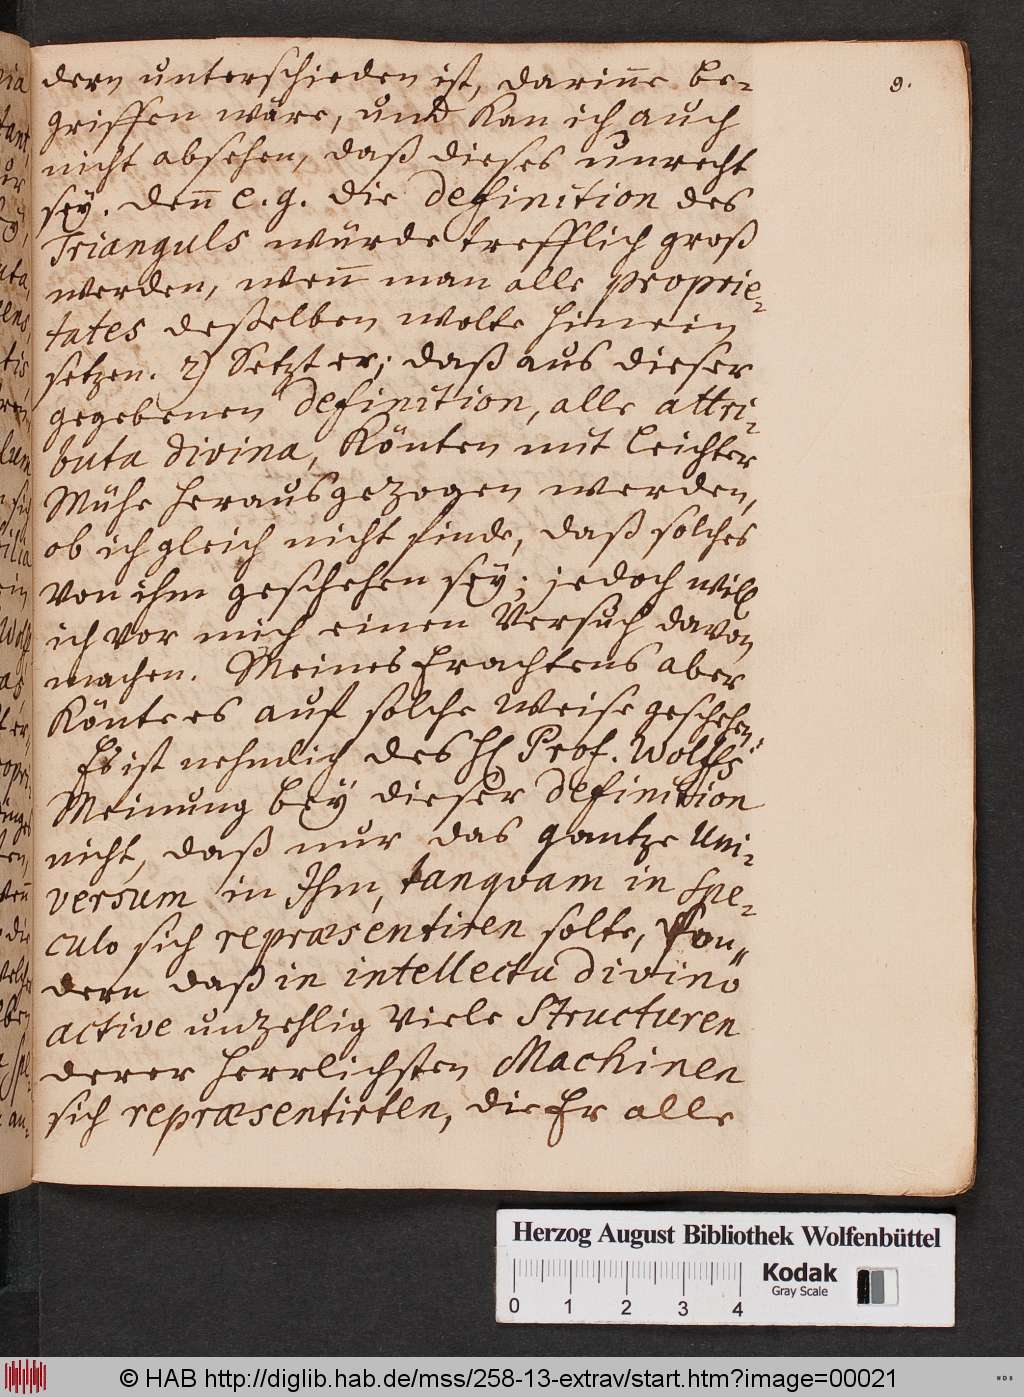 9.
dern unterschieden ist, dariñe be-
griffen wäre, und kan ich auch
nicht absehen, daß dieses unrecht
sey. Deñ e.g. die definition des
Trianguls würde trefflich groß
werden, weñ man alle proprie-
tates deßelben wolte hinein
setzen. 2) Setzt er; daß aus dieser
gegebenen definition, alle attri-
buta divina, könten mit leichter
Mühe herausgezogen werden,
ob ich gleich nicht finde, daß solches
von ihm geschehen sey; jedoch will
ich vor mich einen Versuch davon
machen. Meines Erachtens aber
könte es auf solche Weise geschehen:
Es ist nehmlich des H Prof. Wolffs
Meinung bey dieser definition
nicht, daß nur das gantze Uni-
versum in Ihm, tanqvam in Spe-
culo sich repræsentiren solte, son-
dern daß in intellectu divino
active unzehlig viele Structuren
derer herrlichsten Machinen
sich repræsentirten, die Er alle
Herzog August Bibliothek Wolfenbüttel
0 1 2 3 4
Kodak
Gray Scale
© HAB http://diglib.hab.de/mss/258-13-extrav/start.htm?image=00021